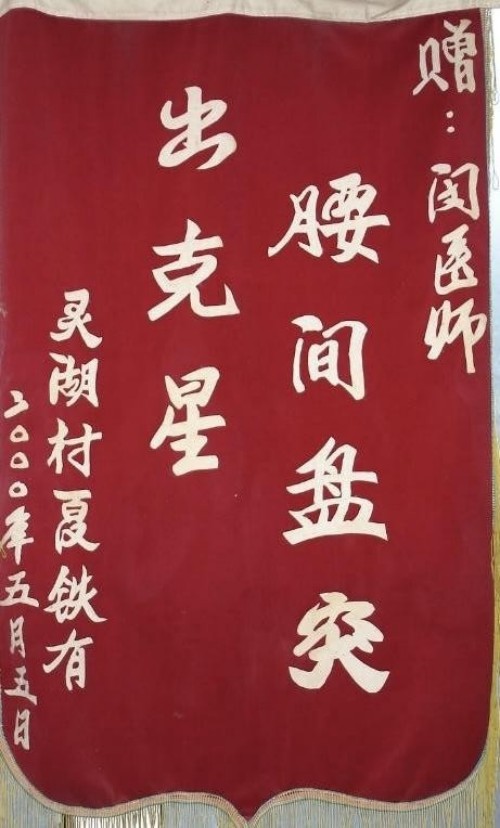 赠：闵医师
腰间盘突
出克星
灵湖村夏铁有
二〇〇〇年五月五日